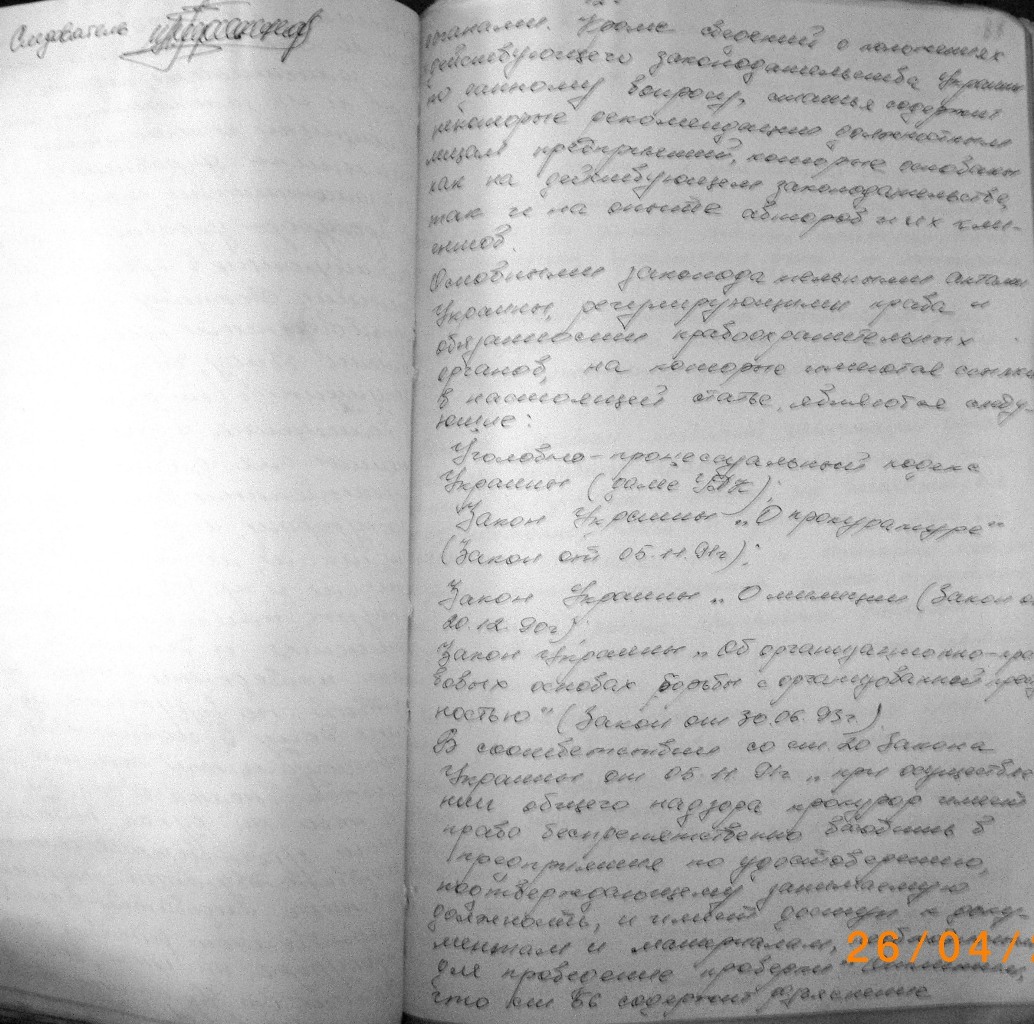 Следователь
ганами. Кроме сведений о положениях
действующего законодательства Украины
по данному вопросу, статья содержит
некоторые рекомендации должностным
лицам предприятий, которые основаны
как на действующем законодательстве,
так и на опыте авторов и их кли-
ентов.
Основными законодательными актами
Украины, регулирующими права и
обязанности правоохранительных
органов, на которые имеются ссылки
в настоящей статье, являются следу
ющие:
Уголовно-процессуальный кодекс
Украины (далее УПК);
Закон Украины „О прокуратуре"
(Закон от 05.11.91г);
Закон Украины „О милиции (Закон от
20.12.90г);
Закон Украины „Об организационно-пра
вовых основах борьбы с организованной прест
ностью" (Закон от 30.06.93г.)
В соответствии со ст. 20 Закона
Украины от 05.11.91г „при осуществле
нии общего надзора прокурор имеет
право беспрепятственно входить в
предприятие по удостоверению,
подтверждающему занимаемую
должность, и имеет доступ к доку-
ментам и материалам,
для проведение проверки"
что ст 66 содержит разъяснение
26/04/